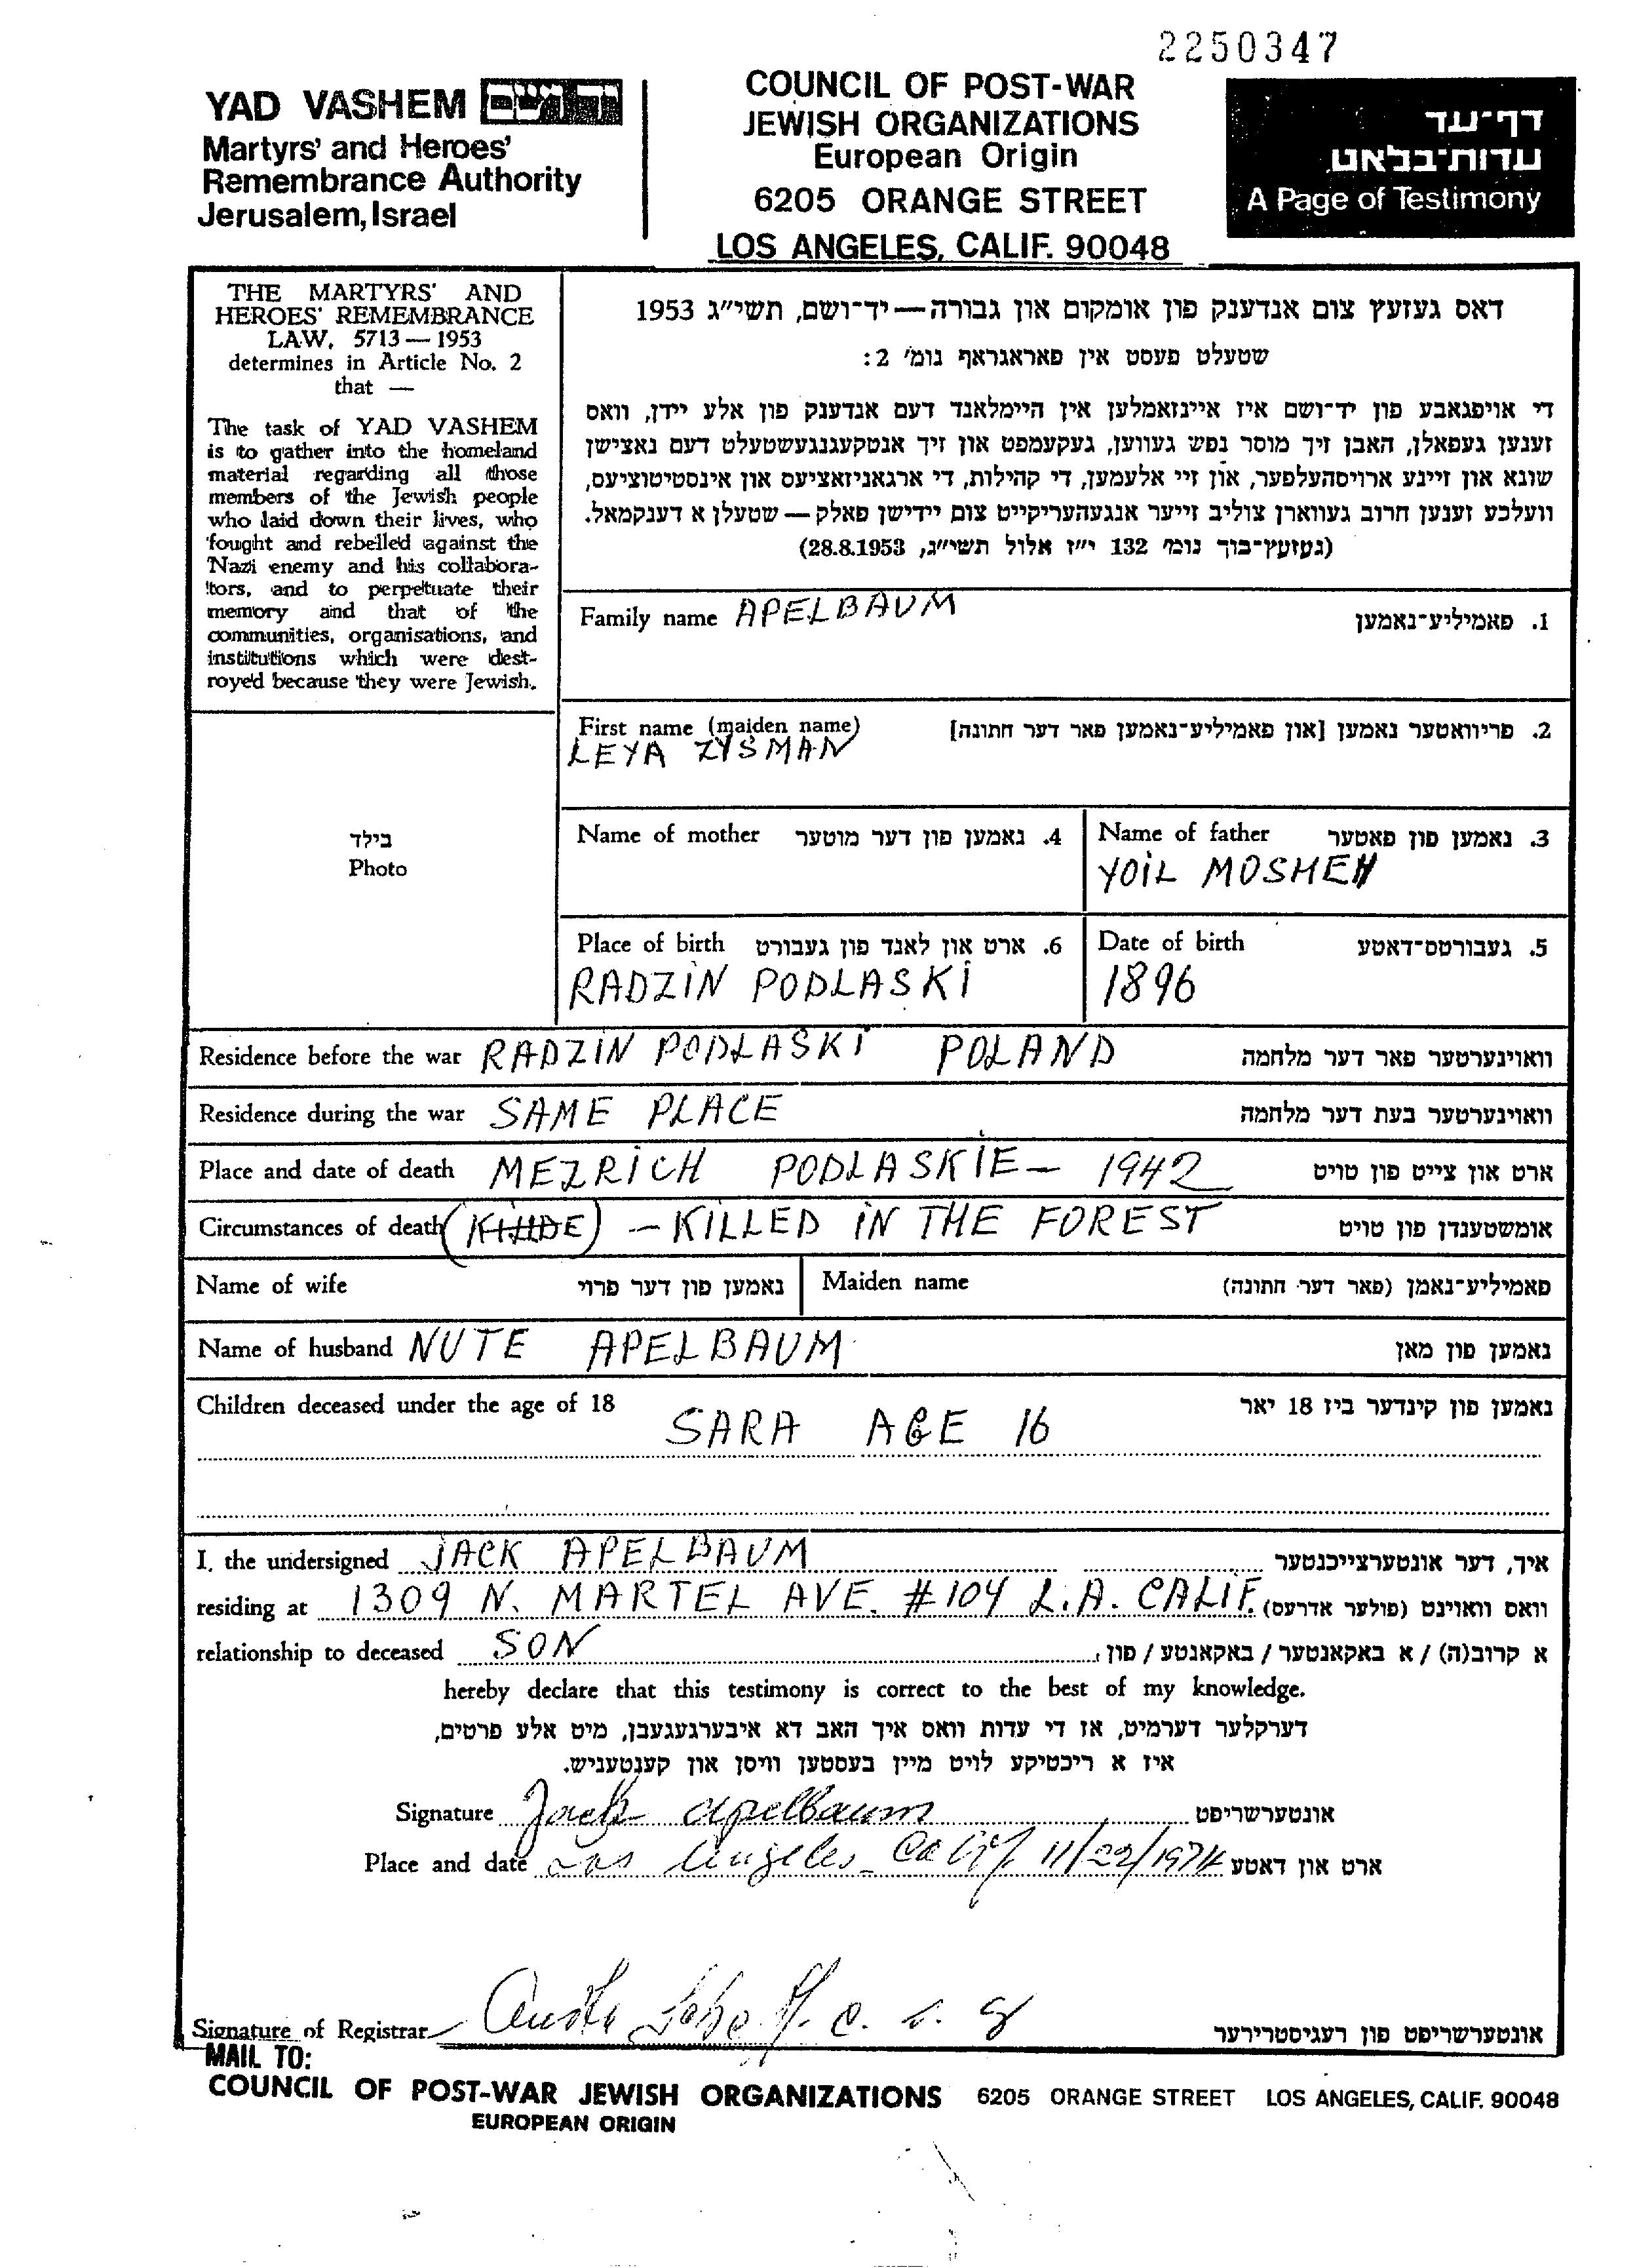 2250347
YAD VASHEM יד ושם
Martyrs' and Heroes'
Remembrance Authority
Jerusalem, Israel
COUNCIL OF POST-WAR
JEWISH ORGANIZATIONS
European Origin
6205 ORANGE STREET
LOS ANGELES, CALIF. 90048
דף-עד
עדות-בלאט
A Page of Testimony
THE MARTYRS' AND
HEROES' REMEMBRANCE
LAW, 5713 — 1953
determines in Article No. 2
that —
The task of YAD VASHEM
is to gather into the homeland
material regarding all those
members of the Jewish people
who laid down their lives, who
fought and rebelled against the
Nazi enemy and his collabora-
tors, and to perpetuate their
memory and that of the
communities, organisations, and
institutions which were dest-
royed because they were Jewish.
דאס געזעץ צום אנדענק פון אומקום און גבורה — יד-ושם, תשי״ג 1953
שטעלט פעסט אין פאראגראף נומ׳ 2:
די אויפגאבע פון יד-ושם איז איינזאמלען אין היימלאנד דעם אנדענק פון אלע יידן, וואס
זענען געפאלן, האבן זיך מוסר נפש געווען, געקעמפט און זיך אנטקעגנגעשטעלט דעם נאצישן
שונא און זיינע ארויסהעלפער, און זיי אלעמען, די קהילות, די ארגאניזאציעס און אינסטיטוציעס,
וועלכע זענען חרוב געווארן צוליב זייער אנגעהעריקייט צום יידישן פאלק — שטעלן א דענקמאל.
(געזעץ-בוך נומ׳ 132 י״ז אלול תשי״ג, 28.8.1953)
Family name APELBAUM 1. פאמיליע-נאמען
First name (maiden name) 2. פריוואטער נאמען [און פאמיליע-נאמען פאר דער חתונה]
LEYA ZYSMAN
בילד
Photo
Name of mother 4. נאמען פון דער מוטער Name of father 3. נאמען פון פאטער
YOIL MOSHEH
Place of birth 6. ארט און לאנד פון געבורט Date of birth 5. געבורטס-דאטע
RADZIN PODLASKI 1896
Residence before the war RADZIN PODLASKI POLAND וואוינערטער פאר דער מלחמה
Residence during the war SAME PLACE וואוינערטער בעת דער מלחמה
Place and date of death MEZRICH PODLASKIE — 1942 ארט און צייט פון טויט
Circumstances of death — KILLED IN THE FOREST אומשטענדן פון טויט
Name of wife נאמען פון דער פרוי Maiden name פאמיליע-נאמן (פאר דער חתונה)
Name of husband NUTE APELBAUM נאמען פון מאן
Children deceased under the age of 18 נאמען פון קינדער ביז 18 יאר
SARA AGE 16
I, the undersigned JACK APELBAUM איך, דער אונטערצייכנטער
residing at 1309 N. MARTEL AVE. #104 L.A. CALIF. וואס וואוינט (פולער אדרעס)
relationship to deceased SON א קרוב(ה) / א באקאנטער / באקאנטע / פון
hereby declare that this testimony is correct to the best of my knowledge.
דערקלער דערמיט, אז די עדות וואס איך האב דא איבערגעגעבן, מיט אלע פרטים,
איז א ריכטיקע לויט מיין בעסטען וויסן און קענטעניש.
Signature Jack Apelbaum אונטערשריפט
Place and date Los Angeles Calif 11/22/1974 ארט און דאטע
Signature of Registrar אונטערשריפט פון רעגיסטרירער
MAIL TO:
COUNCIL OF POST-WAR JEWISH ORGANIZATIONS 6205 ORANGE STREET LOS ANGELES, CALIF. 90048
EUROPEAN ORIGIN